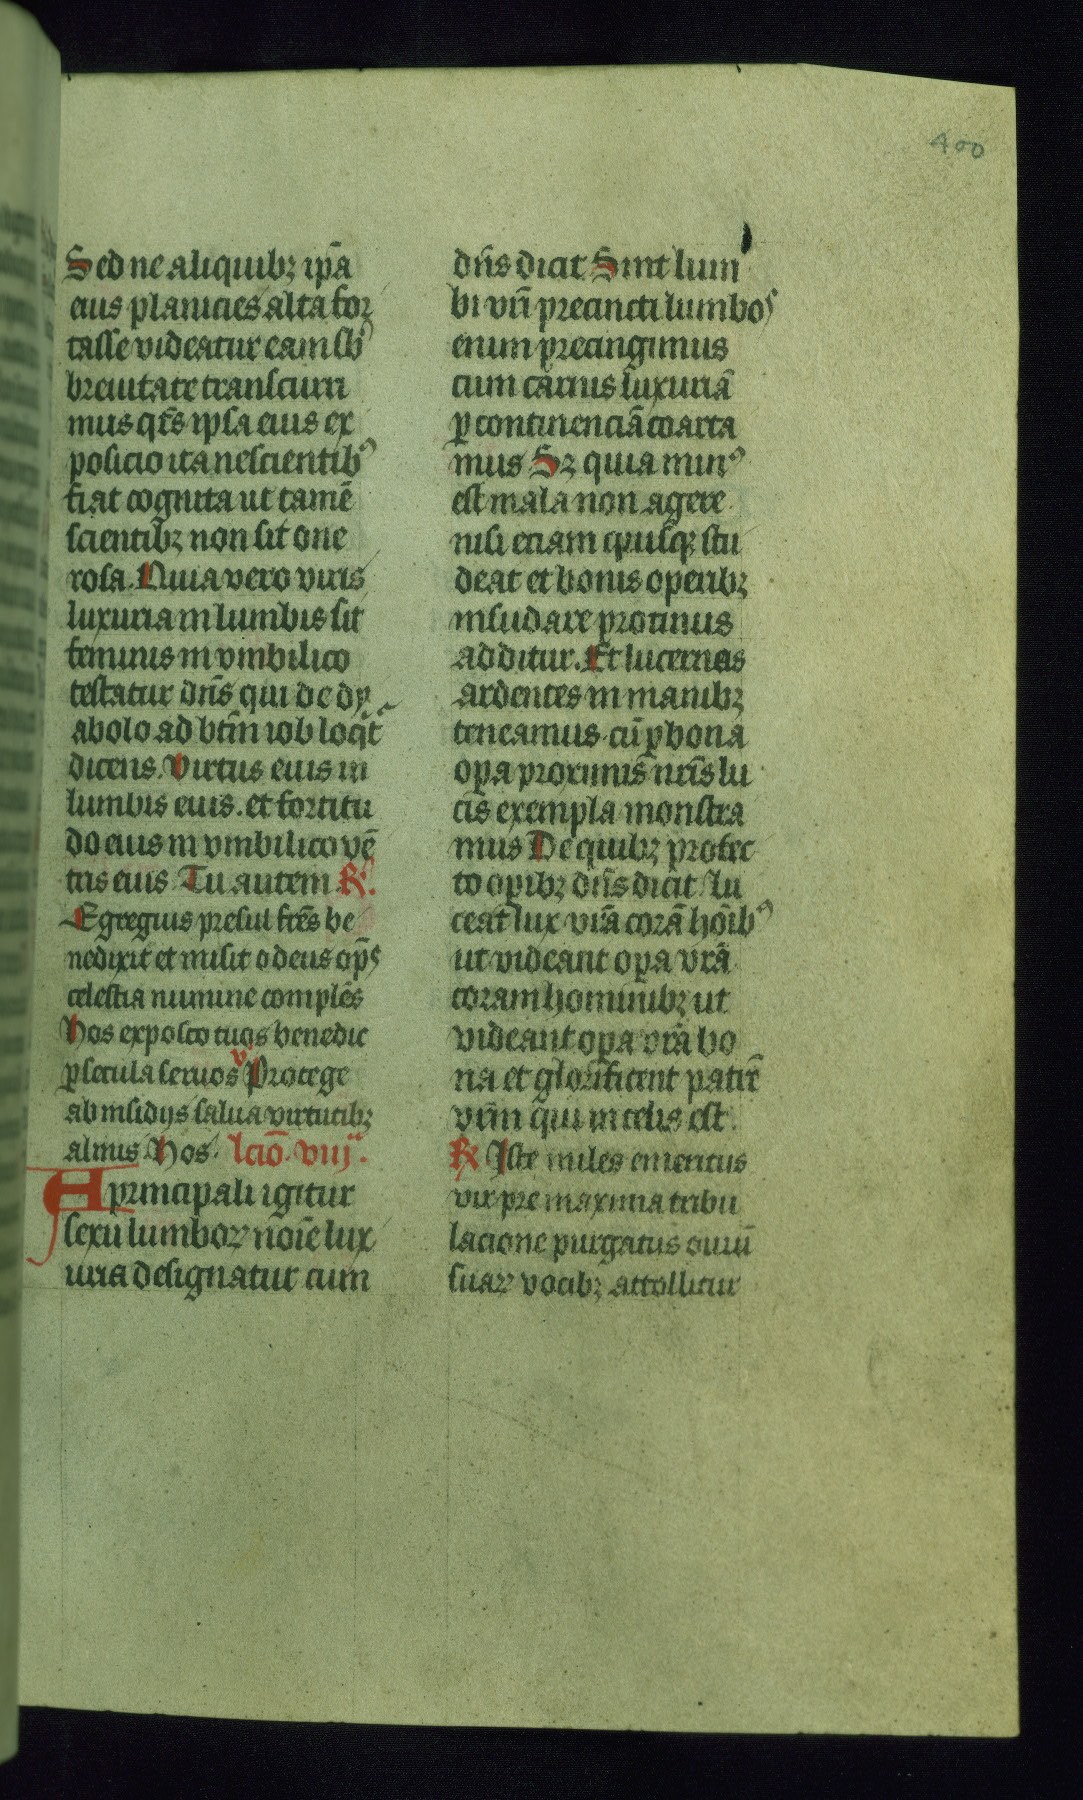 400
Sed ne aliquibꝫ ip̄a
eius planicies alta for
tasse videatur eam sbꝰ
breuitate transcurri
mus qt̄s ipsa eius ex
posicio ita nescientibꝰ
fiat cognita ut tamē
scientibꝫ non sit one
rosa. Quia vero viris
luxuria in lumbis sit
feminis in vmbilico
testatur dn̄s qui de dy
abolo ad btm̄ iob loqͥt̄
dicens. Virtus eius in
lumbis eius. et fortitu
do eius in vmbilico vē
tris eius Tu autem R̷.
Egregius presul fr̄es be
nedixit et misit o deus oꝑꝰ
celestia numine complēs
hos exposco tuos benedic
ꝑ secula seruos v̉ Protege
ab insidijs salua virtutibꝫ
almis hos. lcıō. viijᵃ.
A principali igitur
sexu lumboꝝ noīe lux
uria designatur cum
dn̄s dicit Sint lum
bi vr̄i precincti lumbos
enim precingimus
cum carnis luxuriā
ꝑ continenciā coarta
mus Sꝫ quia minꝰ
est mala non agere
nisi eciam quisqꝫ stu
deat et bonis operibꝫ
insudare protinus
additur. Et lucernas
ardentes in manibꝫ
teneamus. cū ꝑ bona
oꝑa proximis nr̄is lu
cis exempla monstra
mus De quibꝫ profec
to oꝑibꝫ dn̄s dicit lu
ceat lux vr̄a corā hoībꝰ
ut videant oꝑa vr̄a
coram hominibꝫ ut
videant oꝑa vr̄a bo
na et glorificent patrē
vrm̄ qui in celis est.
R̷ Iste miles emeritus
vir pre maxima tribu
lacione purgatus ouiū
suaꝝ vocibꝫ attollitur